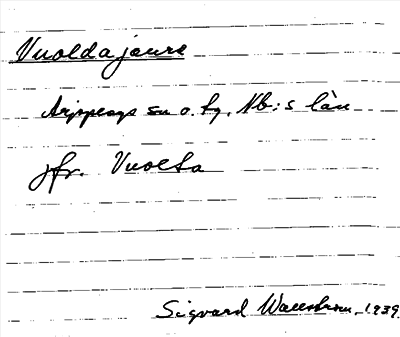 Vuoldajaure
Arjeplogs sn o. tg, Nb:s län
jfr. Vuolta
Sigvard Wallström 1939